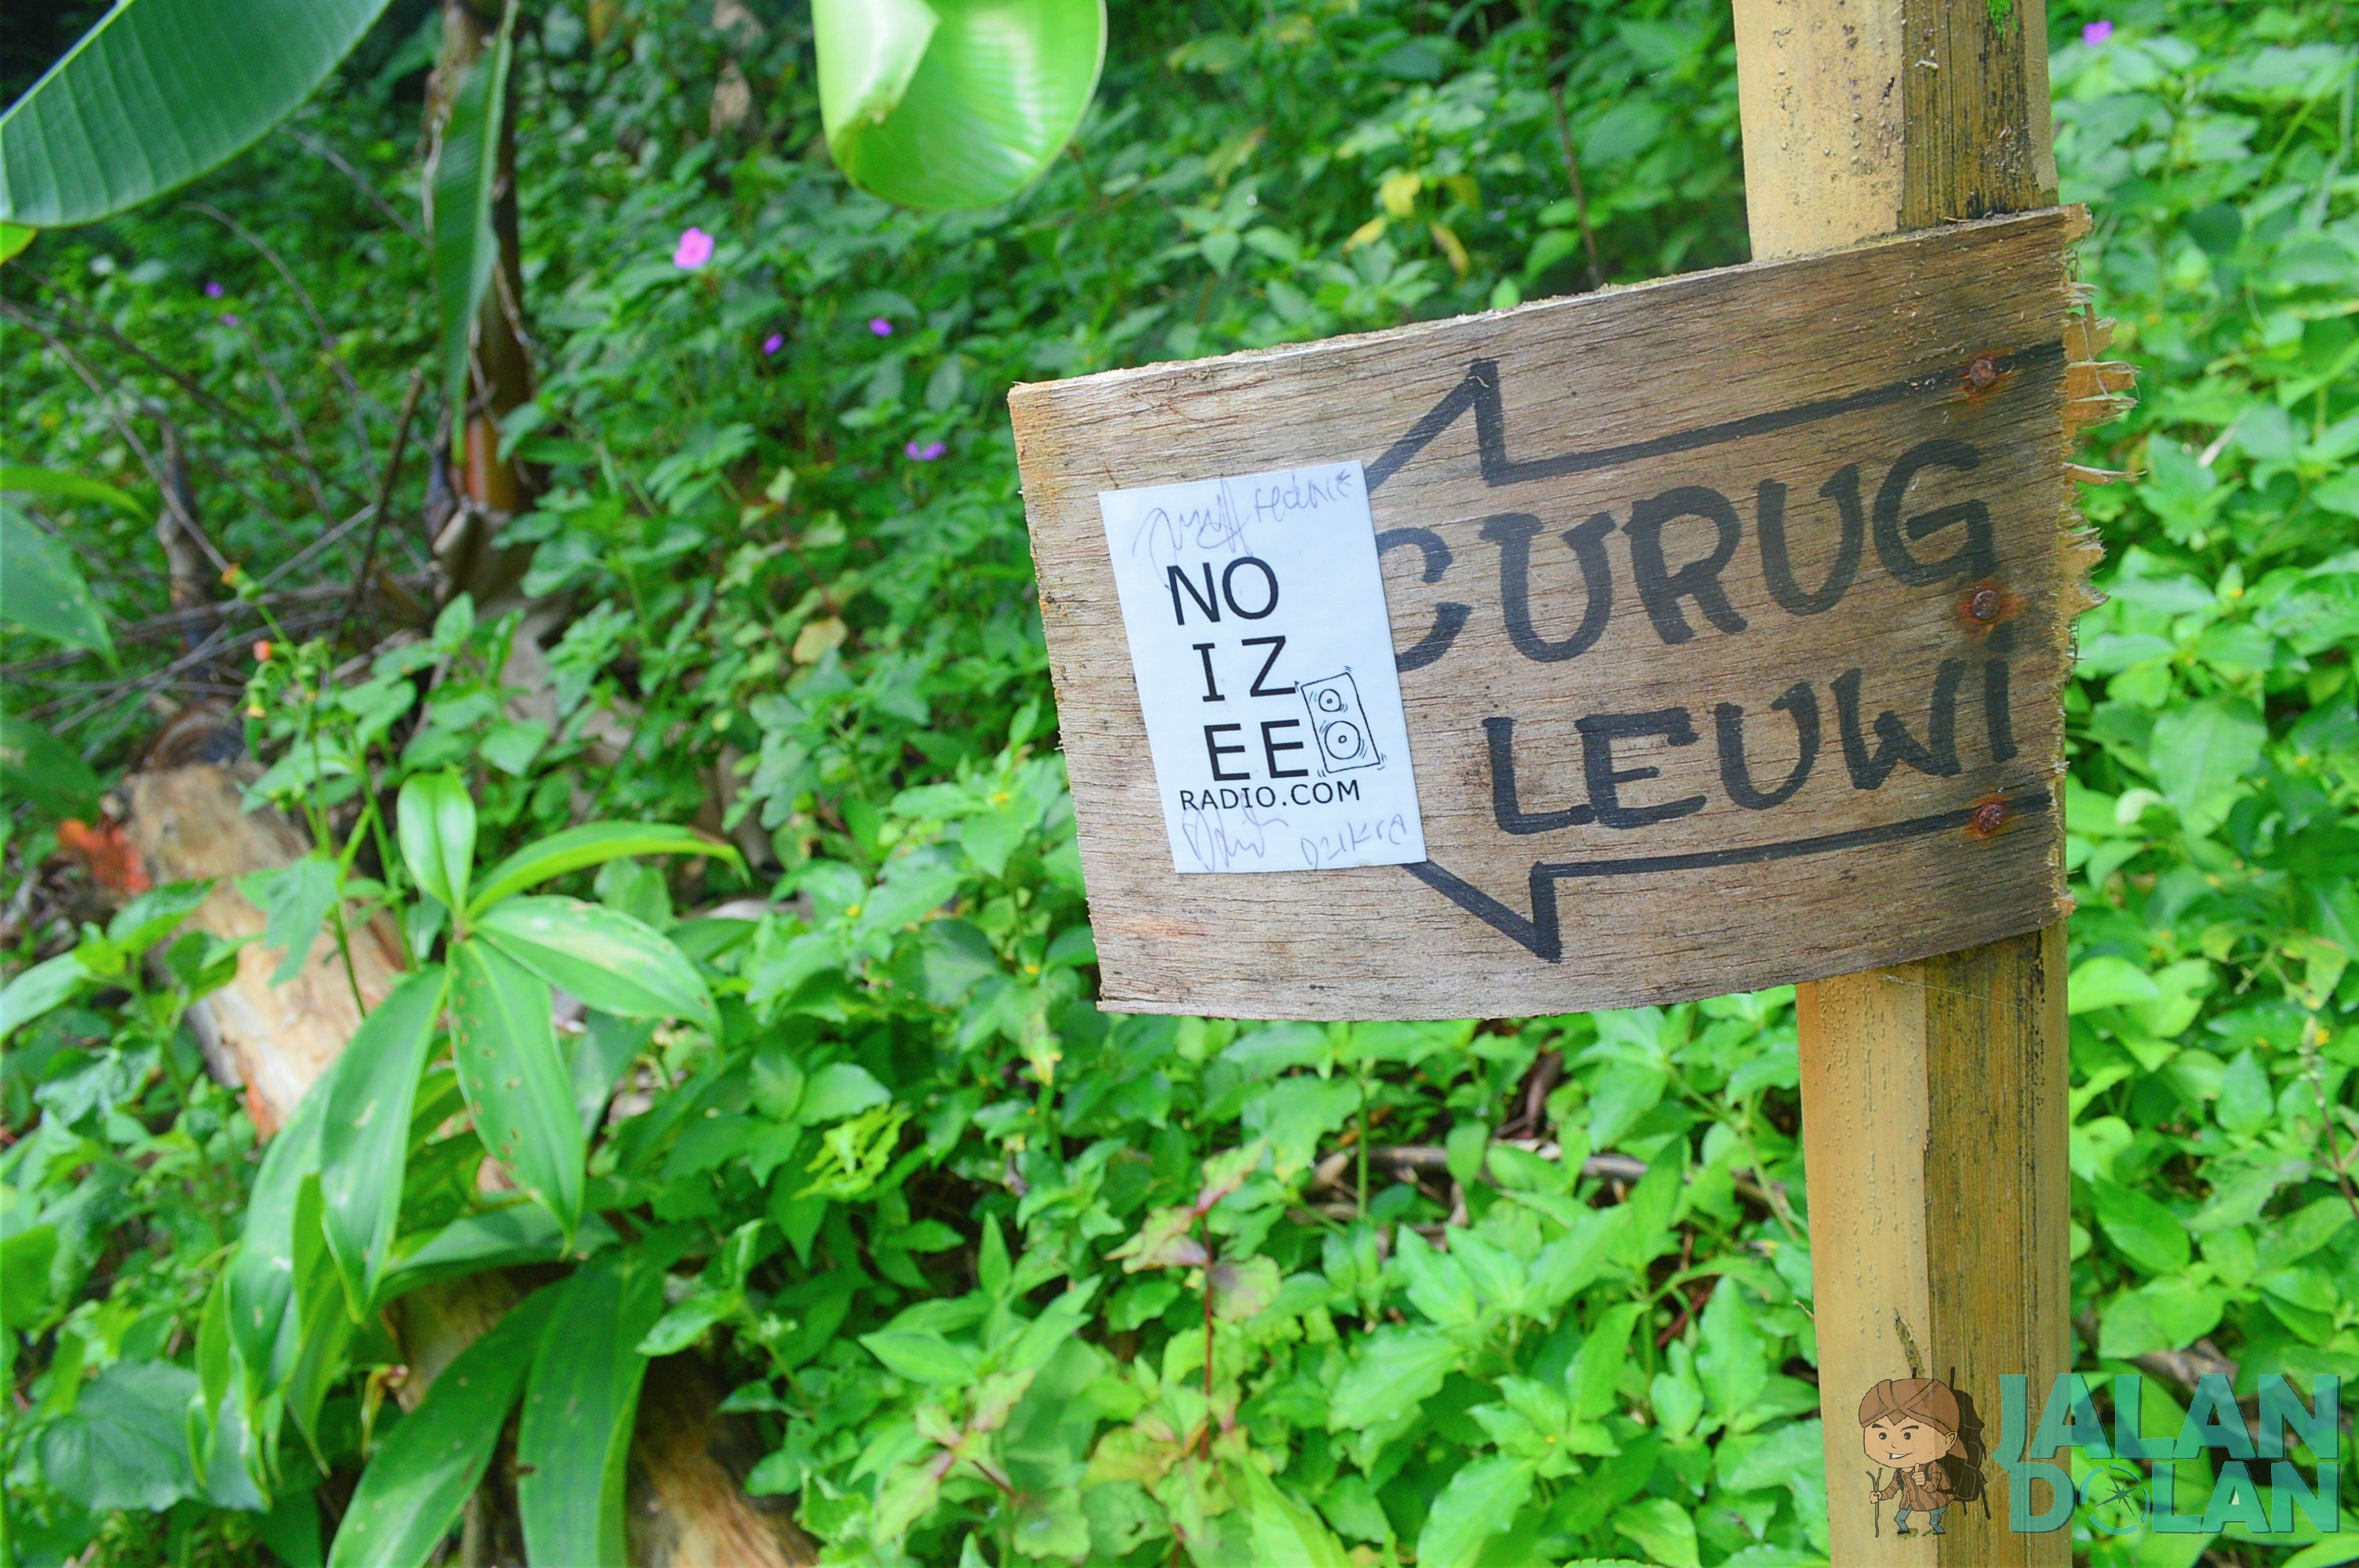 NO
IZ
EE
RADIO.COM
Dzikra
CURUG
LEUWI
JALAN
DOLAN